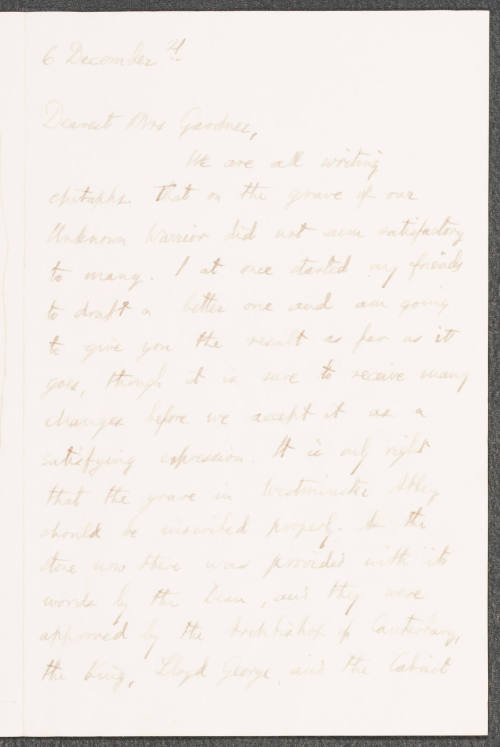 6 December 21
Dearest Mrs Gardner,
We are all writing
epitaphs. That on the grave of our
Unknown Warrior did not seem satisfactory
to many. I at once started my friends
to draft a better one and am going
to give you the result as far as it
goes, though it is sure to receive many
changes before we accept it as a
satisfying expression. It is only right
that the grave in Westminster Abbey
should be inscribed properly. As the
stone now there was provided with its
words by the Dean, and they were
approved by the Archbishop of Canterbury,
the King, Lloyd George, and the Cabinet